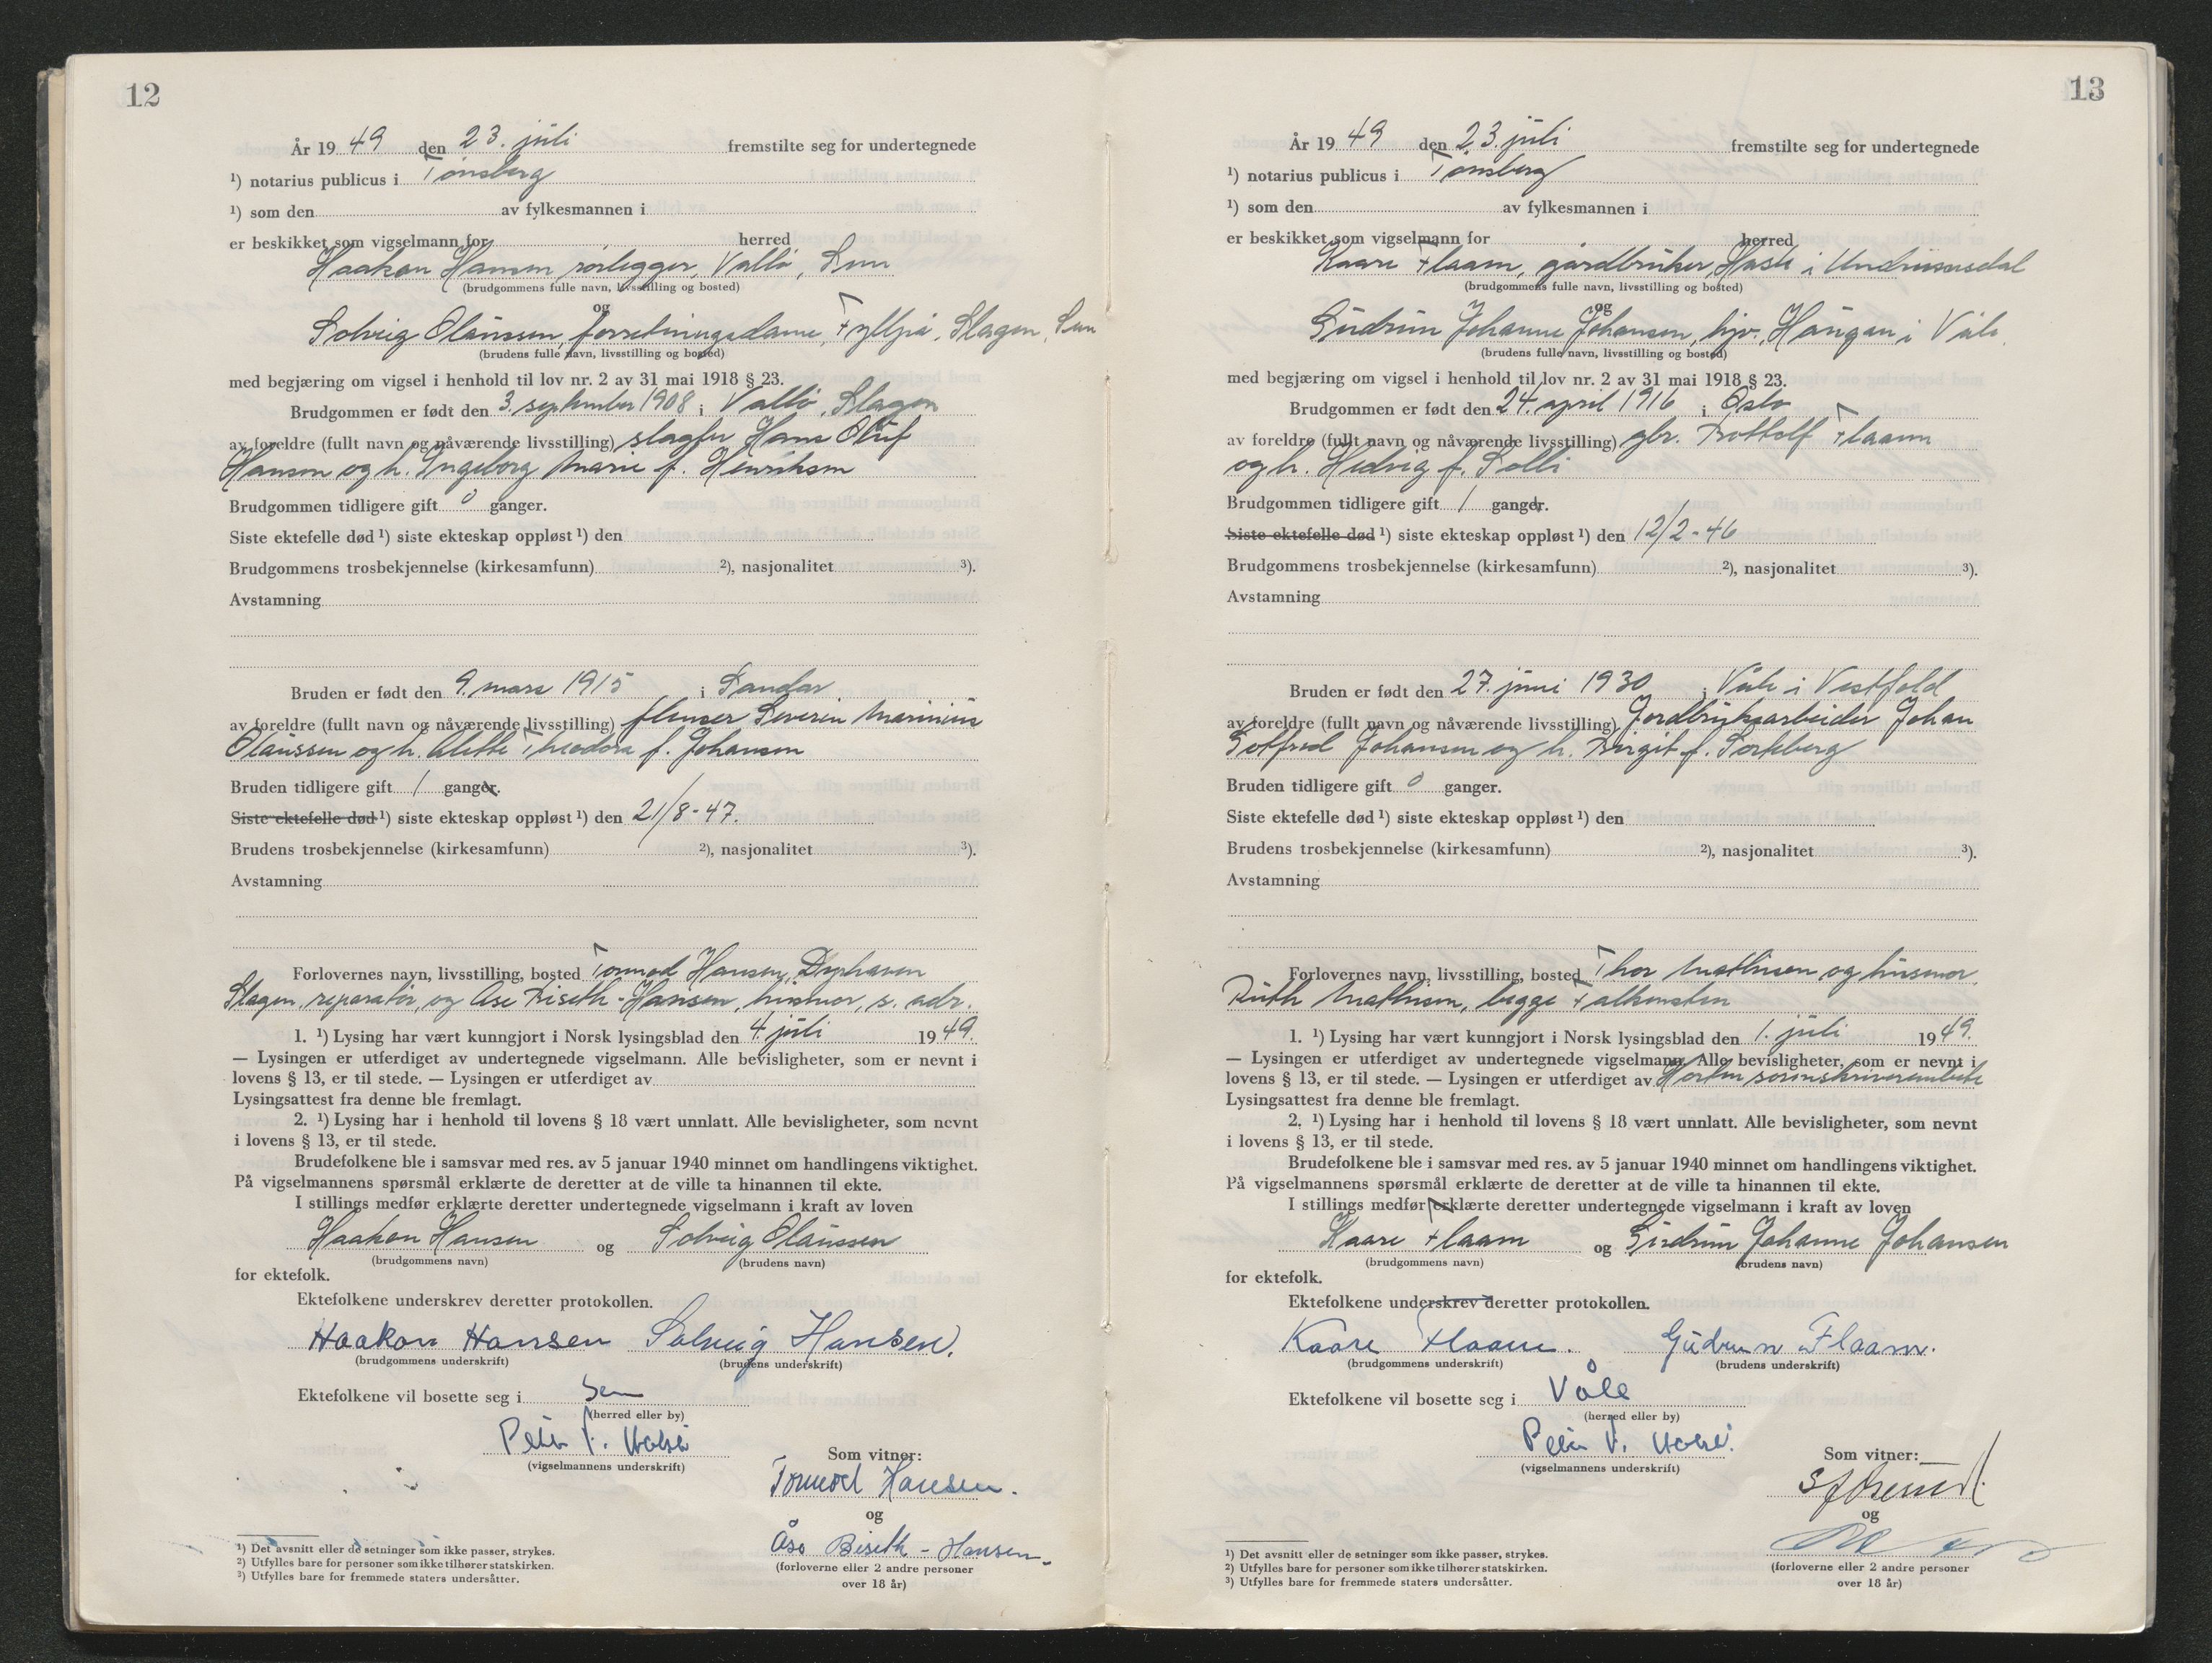 12
År 19 49 den 23. juli fremstilte seg for undertegnede
¹) notarius publicus i Tønsberg
¹) som den av fylkesmannen i
er beskikket som vigselmann for herred
Haakon Hansen, rørlegger, Vallø, Sem
(brudgommens fulle navn, livsstilling og bosted)
og
Solveig Olaussen, forretningsdame, Slagen, Sem
(brudens fulle navn, livsstilling og bosted)
med begjæring om vigsel i henhold til lov nr. 2 av 31 mai 1918 § 23.
Brudgommen er født den 3. september 1908 i Vallø, Slagen
av foreldre (fullt navn og nåværende livsstilling) Hans Oluf
Hansen og h. Ingeborg Marie f. Henriksen
Brudgommen tidligere gift 0 ganger.
Siste ektefelle død ¹) siste ekteskap oppløst ¹) den
Brudgommens trosbekjennelse (kirkesamfunn) ²), nasjonalitet ³).
Avstamning
Bruden er født den 9. mars 1915 i Sandar
av foreldre (fullt navn og nåværende livsstilling) flenser Severin Marinius
Olaussen og h. Alette Theodora f. Johansen
Bruden tidligere gift 1 ganger.
Siste ektefelle død ¹) siste ekteskap oppløst ¹) den 21/8-47.
Brudens trosbekjennelse (kirkesamfunn) ²), nasjonalitet ³).
Avstamning
Forlovernes navn, livsstilling, bosted Tormod Hansen,
Slagen, reparatør, og Åse Biseth-Hansen, husmor, s. adr.
1. ¹) Lysing har vært kunngjort i Norsk lysingsblad den 4. juli 19 49.
— Lysingen er utferdiget av undertegnede vigselmann. Alle bevisligheter, som er nevnt i
lovens § 13, er til stede. — Lysingen er utferdiget av
Lysingsattest fra denne ble fremlagt.
2. ¹) Lysing har i henhold til lovens § 18 vært unnlatt. Alle bevisligheter, som nevnt
i lovens § 13, er til stede.
Brudefolkene ble i samsvar med res. av 5 januar 1940 minnet om handlingens viktighet.
På vigselmannens spørsmål erklærte de deretter at de ville ta hinannen til ekte.
I stillings medfør erklærte deretter undertegnede vigselmann i kraft av loven
Haakon Hansen og Solveig Olaussen
(brudgommens navn) (brudens navn)
for ektefolk.
Ektefolkene underskrev deretter protokollen.
Haakon Hansen Solveig Hansen.
(brudgommens underskrift) (brudens underskrift)
Ektefolkene vil bosette seg i Sem
(herred eller by)
Peter V.
(vigselmannens underskrift)
Som vitner:
Tormod Hansen.
og
Åse Biseth-Hansen.
(forloverne eller 2 andre personer
over 18 år)
¹) Det avsnitt eller de setninger som ikke passer, strykes.
²) Utfylles bare for personer som ikke tilhører statskirken.
³) Utfylles bare for fremmede staters undersåtter.
13
År 19 49 den 23. juli fremstilte seg for undertegnede
¹) notarius publicus i Tønsberg
¹) som den av fylkesmannen i
er beskikket som vigselmann for herred
Kaare Flaam, gårdbruker, i Undrumsdal
(brudgommens fulle navn, livsstilling og bosted)
og
Gudrun Johanne Johansen, hjv., Haugan i Våle.
(brudens fulle navn, livsstilling og bosted)
med begjæring om vigsel i henhold til lov nr. 2 av 31 mai 1918 § 23.
Brudgommen er født den 24. april 1916 i Oslo
av foreldre (fullt navn og nåværende livsstilling) gbr. Flaam
og h. Hedvig f. Solli
Brudgommen tidligere gift 1 ganger.
Siste ektefelle død ¹) siste ekteskap oppløst ¹) den 12/2-46
Brudgommens trosbekjennelse (kirkesamfunn) ²), nasjonalitet ³).
Avstamning
Bruden er født den 27. juni 1930 i Våle i Vestfold
av foreldre (fullt navn og nåværende livsstilling) Jordbruksarbeider Johan
Gotfred Johansen og h. Birgit f.
Bruden tidligere gift 0 ganger.
Siste ektefelle død ¹) siste ekteskap oppløst ¹) den
Brudens trosbekjennelse (kirkesamfunn) ²), nasjonalitet ³).
Avstamning
Forlovernes navn, livsstilling, bosted Thor Mathisen og husmor
Ruth Mathisen, begge Falkensten
1. ¹) Lysing har vært kunngjort i Norsk lysingsblad den 1. juli 19 49.
— Lysingen er utferdiget av undertegnede vigselmann. Alle bevisligheter, som er nevnt i
lovens § 13, er til stede. — Lysingen er utferdiget av Horten sorenskriverembete
Lysingsattest fra denne ble fremlagt.
2. ¹) Lysing har i henhold til lovens § 18 vært unnlatt. Alle bevisligheter, som nevnt
i lovens § 13, er til stede.
Brudefolkene ble i samsvar med res. av 5 januar 1940 minnet om handlingens viktighet.
På vigselmannens spørsmål erklærte de deretter at de ville ta hinannen til ekte.
I stillings medfør erklærte deretter undertegnede vigselmann i kraft av loven
Kaare Flaam og Gudrun Johanne Johansen
(brudgommens navn) (brudens navn)
for ektefolk.
Ektefolkene underskrev deretter protokollen.
Kaare Flaam. Gudrun Flaam.
(brudgommens underskrift) (brudens underskrift)
Ektefolkene vil bosette seg i Våle
(herred eller by)
Peter V.
(vigselmannens underskrift)
Som vitner:
og
(forloverne eller 2 andre personer
over 18 år)
¹) Det avsnitt eller de setninger som ikke passer, strykes.
²) Utfylles bare for personer som ikke tilhører statskirken.
³) Utfylles bare for fremmede staters undersåtter.